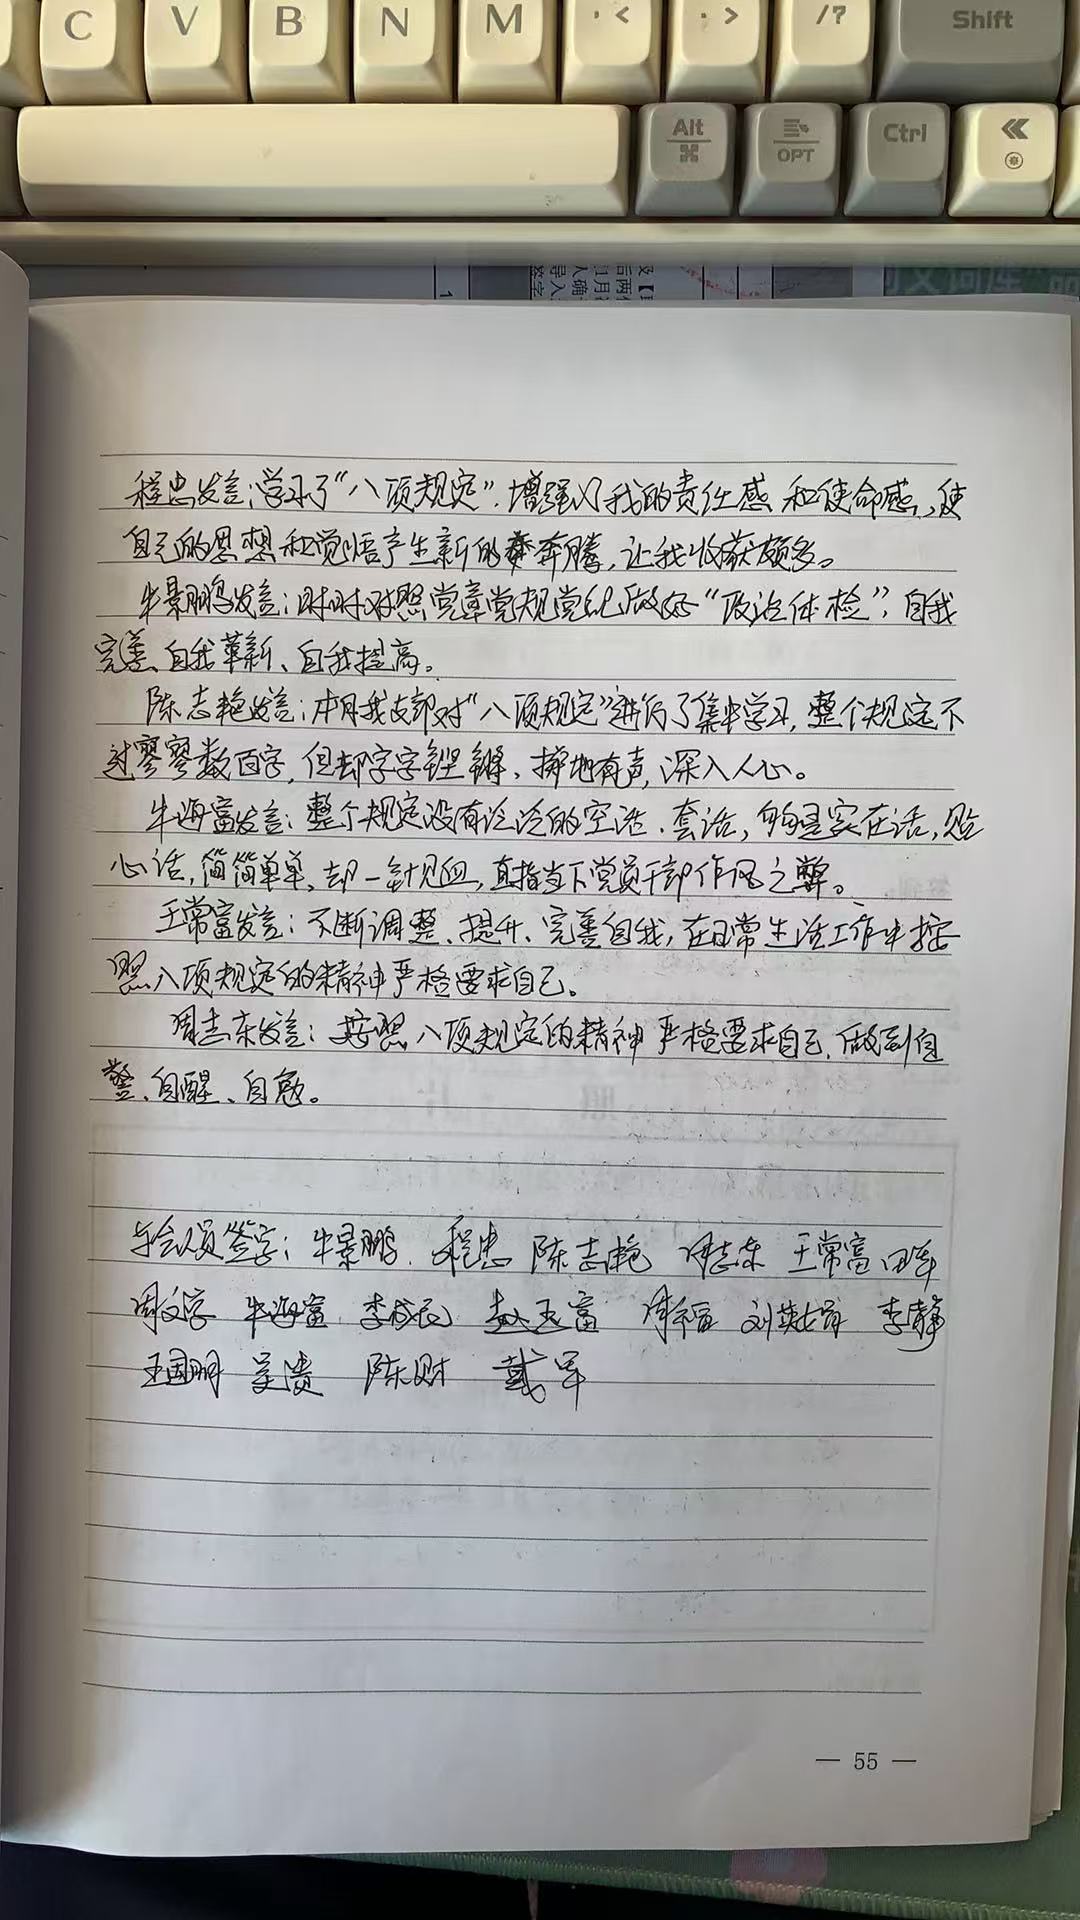 C V B N M , < . > / ? Shift
Alt OPT Ctrl
程忠发言:学习了“八项规定”,增强了我的责任感和使命感,使
自己的思想和觉悟产生新的奔腾,让我收获颇多。
牛景鹏发言:时时对照党章党规党纪做好“政治体检”,自我
完善、自我革新、自我提高。
陈志艳发言:本月我支部对“八项规定”进行了集中学习,整个规定不
过寥寥数百字,但却字字铿锵、掷地有声,深入人心。
牛海富发言:整个规定没有泛泛的空话、套话,句句是实在话,贴
心话,简简单单、却一针见血,直指当下党员干部作风之弊。
王常富发言:不断调整、提升、完善自我,在日常生活工作中按
照八项规定的精神严格要求自己。
周志东发言:按照八项规定的精神严格要求自己,做到自
警、自醒、自勉。
与会人员签字:牛景鹏 程忠 陈志艳 周志东 王常富 田军
周文学 牛海富 李成民 赵玉富 刘英娟 李静
王国明 吴贵 陈财 戴军
— 55 —